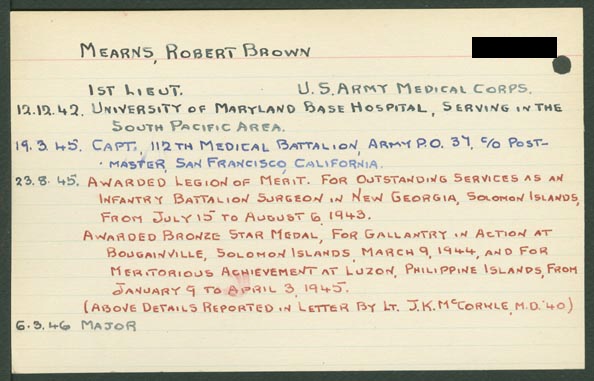 MEARNS, ROBERT BROWN
1ST LIEUT. U.S. ARMY MEDICAL CORPS.
12.12.42. UNIVERSITY OF MARYLAND BASE HOSPITAL, SERVING IN THE
SOUTH PACIFIC AREA.
19.3.45. CAPT., 112TH MEDICAL BATTALION, ARMY P.O. 37, C/O POST-
MASTER, SAN FRANCISCO, CALIFORNIA.
23.8.45. AWARDED LEGION OF MERIT. FOR OUTSTANDING SERVICES AS AN
INFANTRY BATTALION SURGEON IN NEW GEORGIA, SOLOMON ISLANDS,
FROM JULY 15 TO AUGUST 6, 1943.
AWARDED BRONZE STAR MEDAL, FOR GALLANTRY IN ACTION AT
BOUGAINVILLE, SOLOMON ISLANDS, MARCH 9, 1944, AND FOR
MERITORIOUS ACHIEVEMENT AT LUZON, PHILIPPINE ISLANDS, FROM
JANUARY 9 TO APRIL 3, 1945.
(ABOVE DETAILS REPORTED IN LETTER BY LT. J.K. MCCORKLE, M.D. '40)
6.3.46 MAJOR